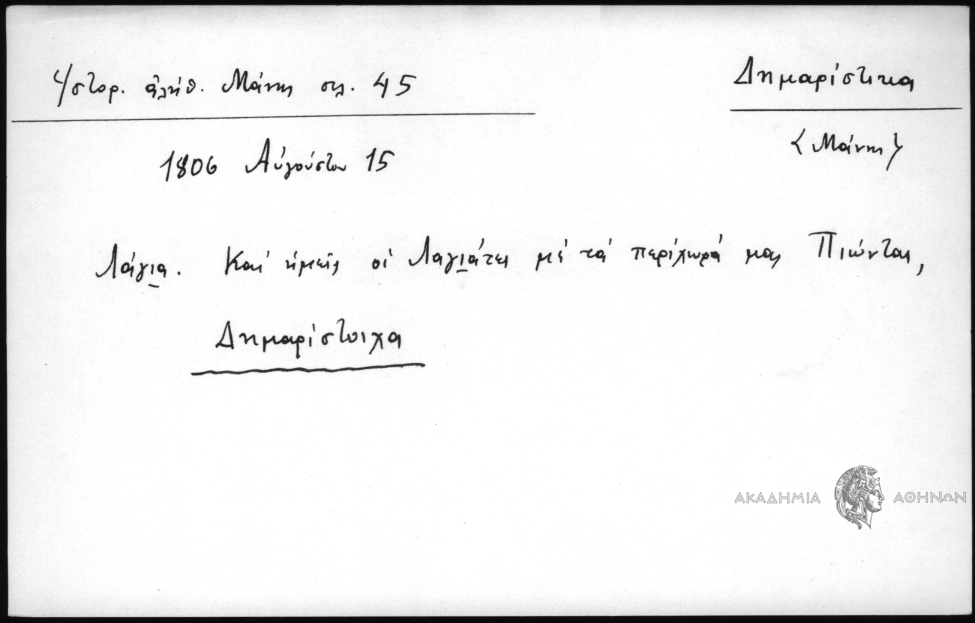 Ἱστορ. ἀλήθ. Μάνης σελ. 45
Δημαρίστικα
<Μάνης>
1806 Αὐγούστου 15
Λάγια. Καὶ ἡμεῖς οἱ Λαγιάτες μὲ τὰ περίχωρά μας Πιόντας,
Δημαρίστοιχα
ΑΚΑΔΗΜΙΑ ΑΘΗΝΩΝ